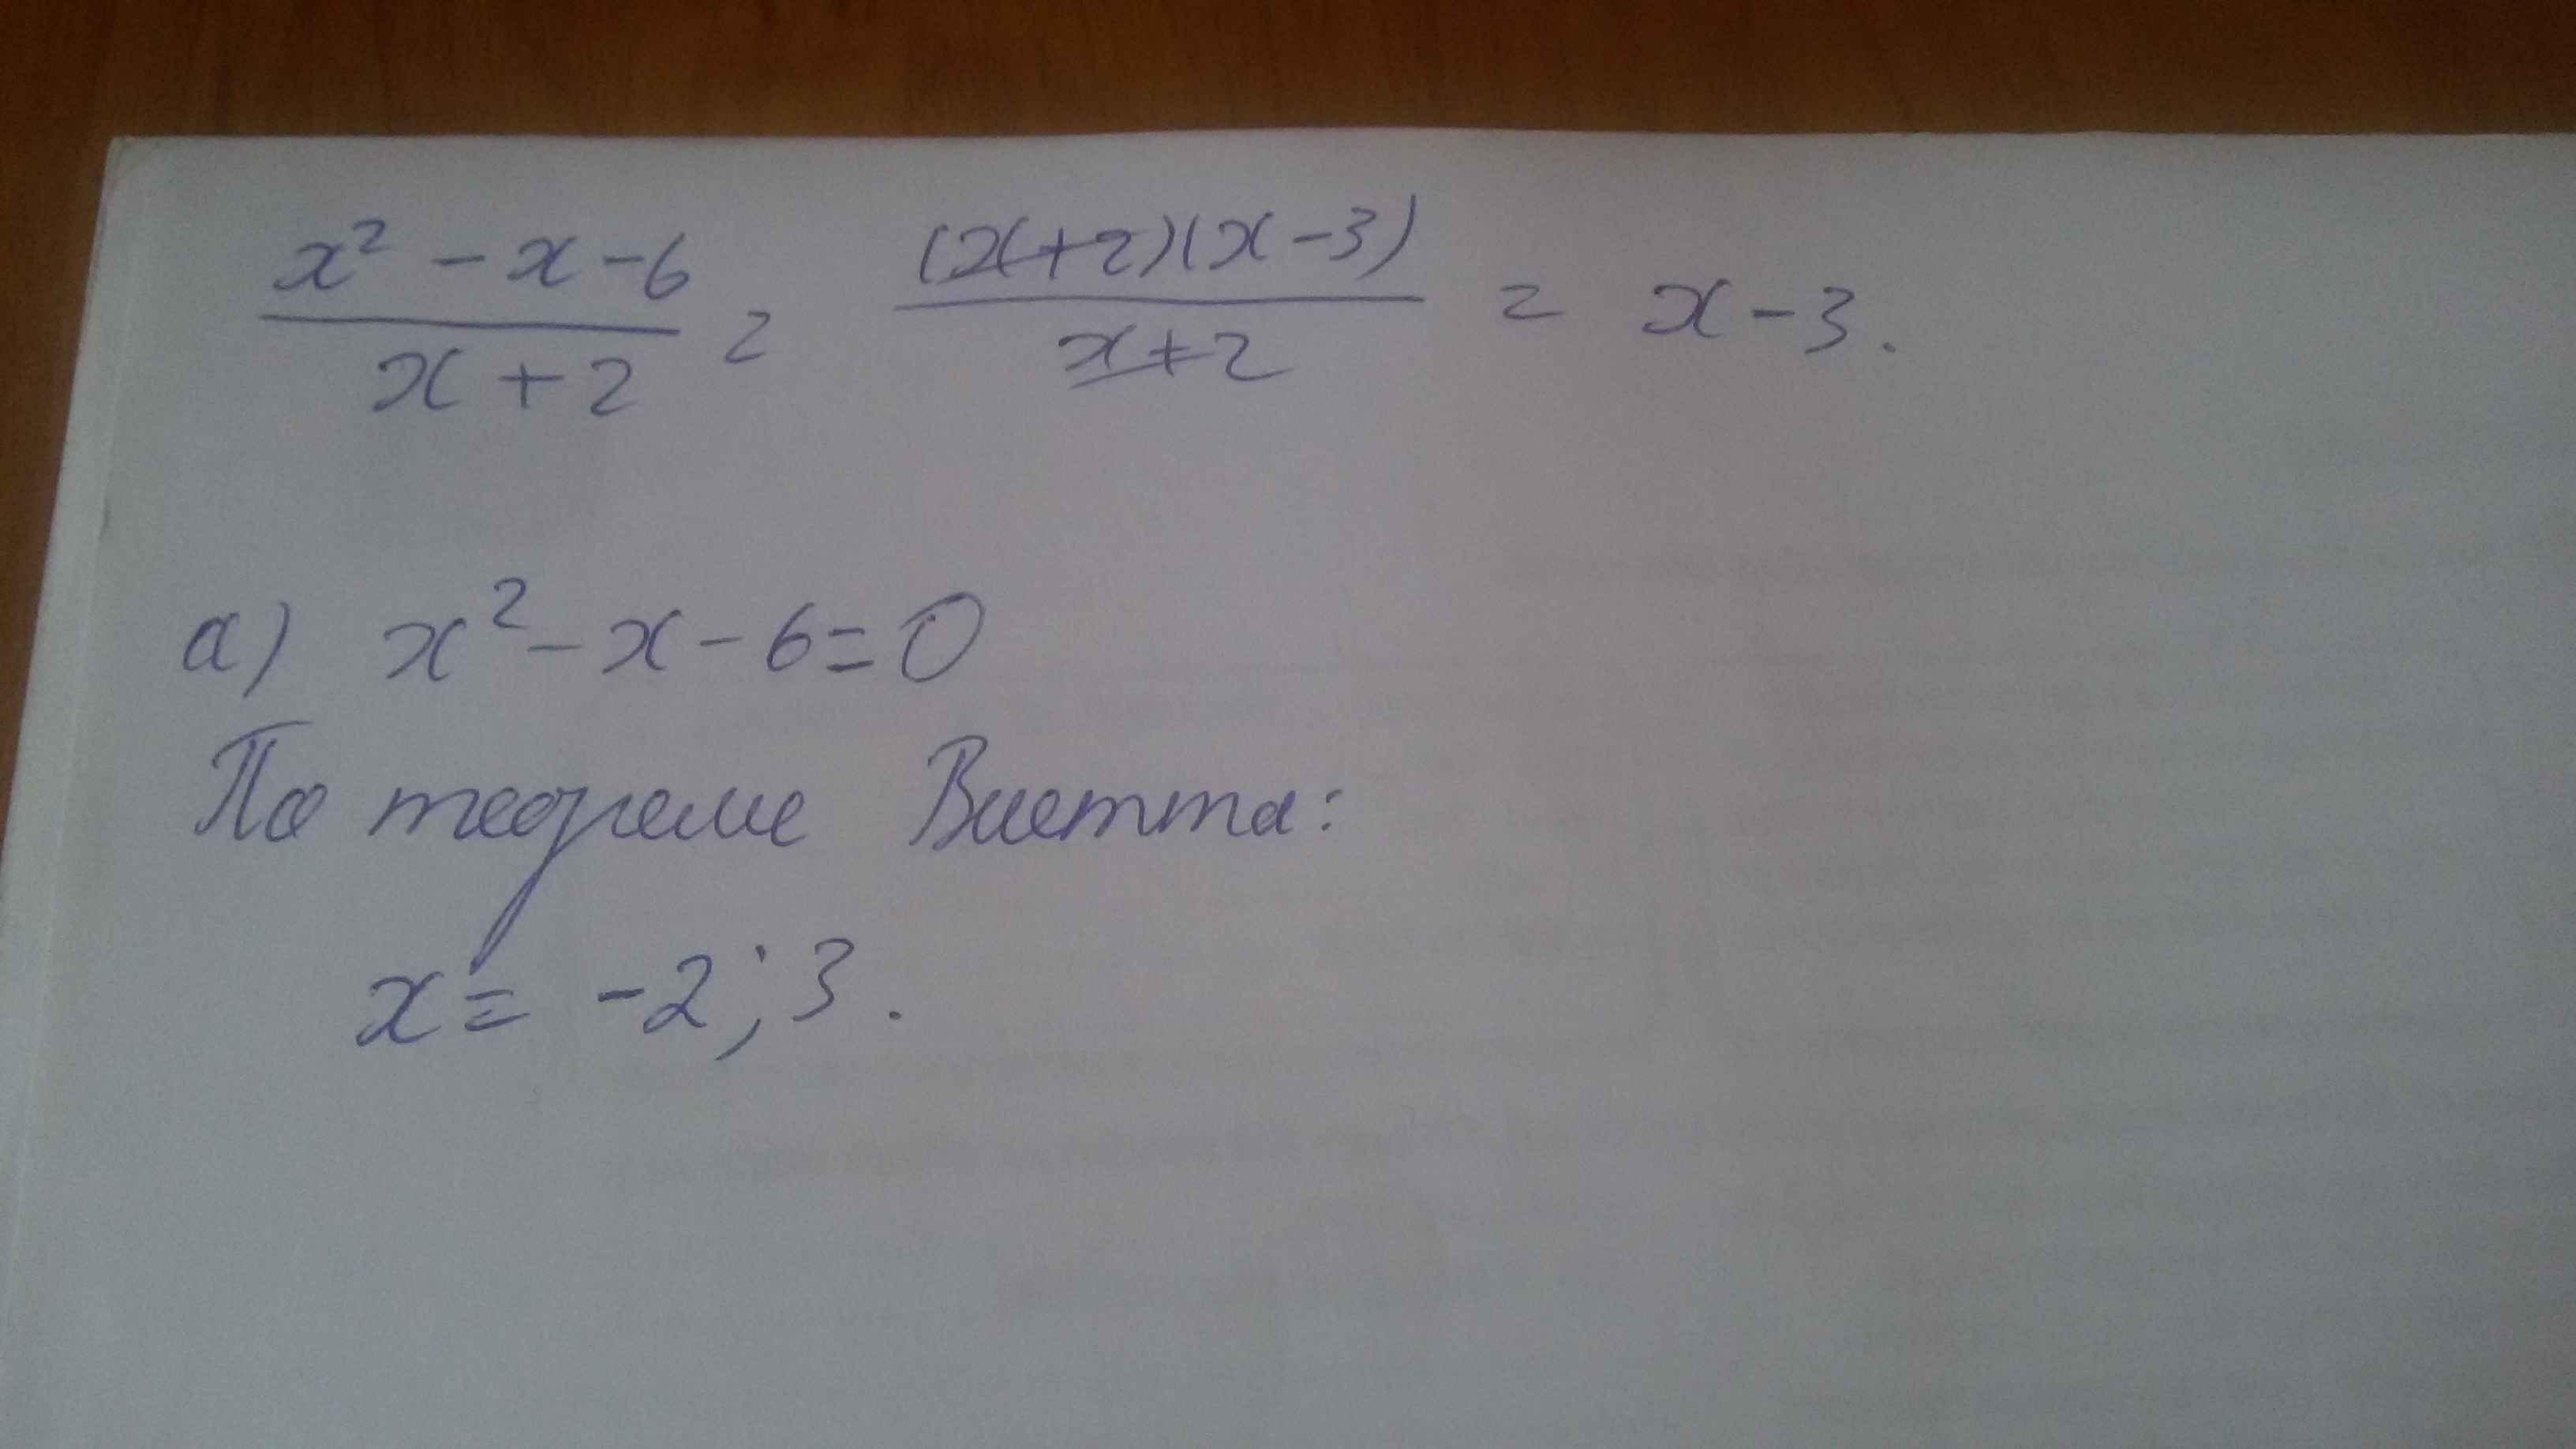 x² - x - 6 / x + 2 = (x+2)(x-3) / x+2 = x - 3.
а) x² - x - 6 = 0
По теореме Виетта:
x = -2; 3.